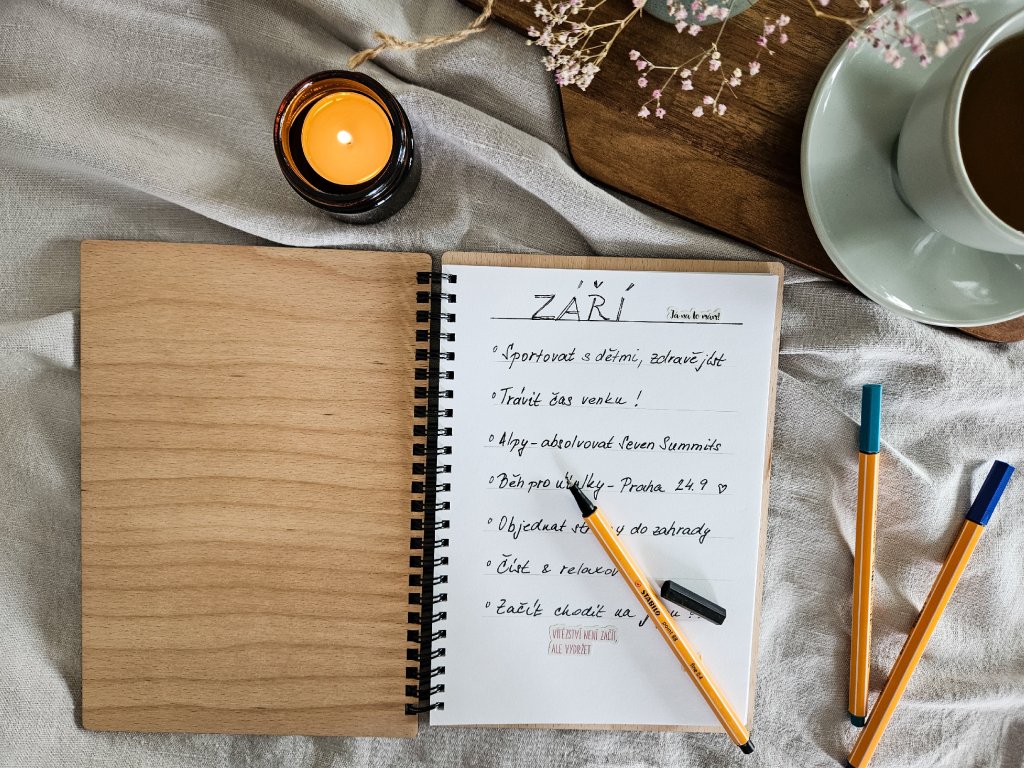 ZÁŘÍ
Já na to mám!
° Sportovat s dětmi, zdravě jíst
° Trávit čas venku !
° Alpy - absolvovat Seven Summits
° Běh pro - Praha 24.9 ♡
° Objednat do zahrady
° Číst &
° Začít chodit na
VÍTĚZSTVÍ NENÍ ZAČÍT,
ALE VYDRŽET
STABILO point 88 fine 0,4